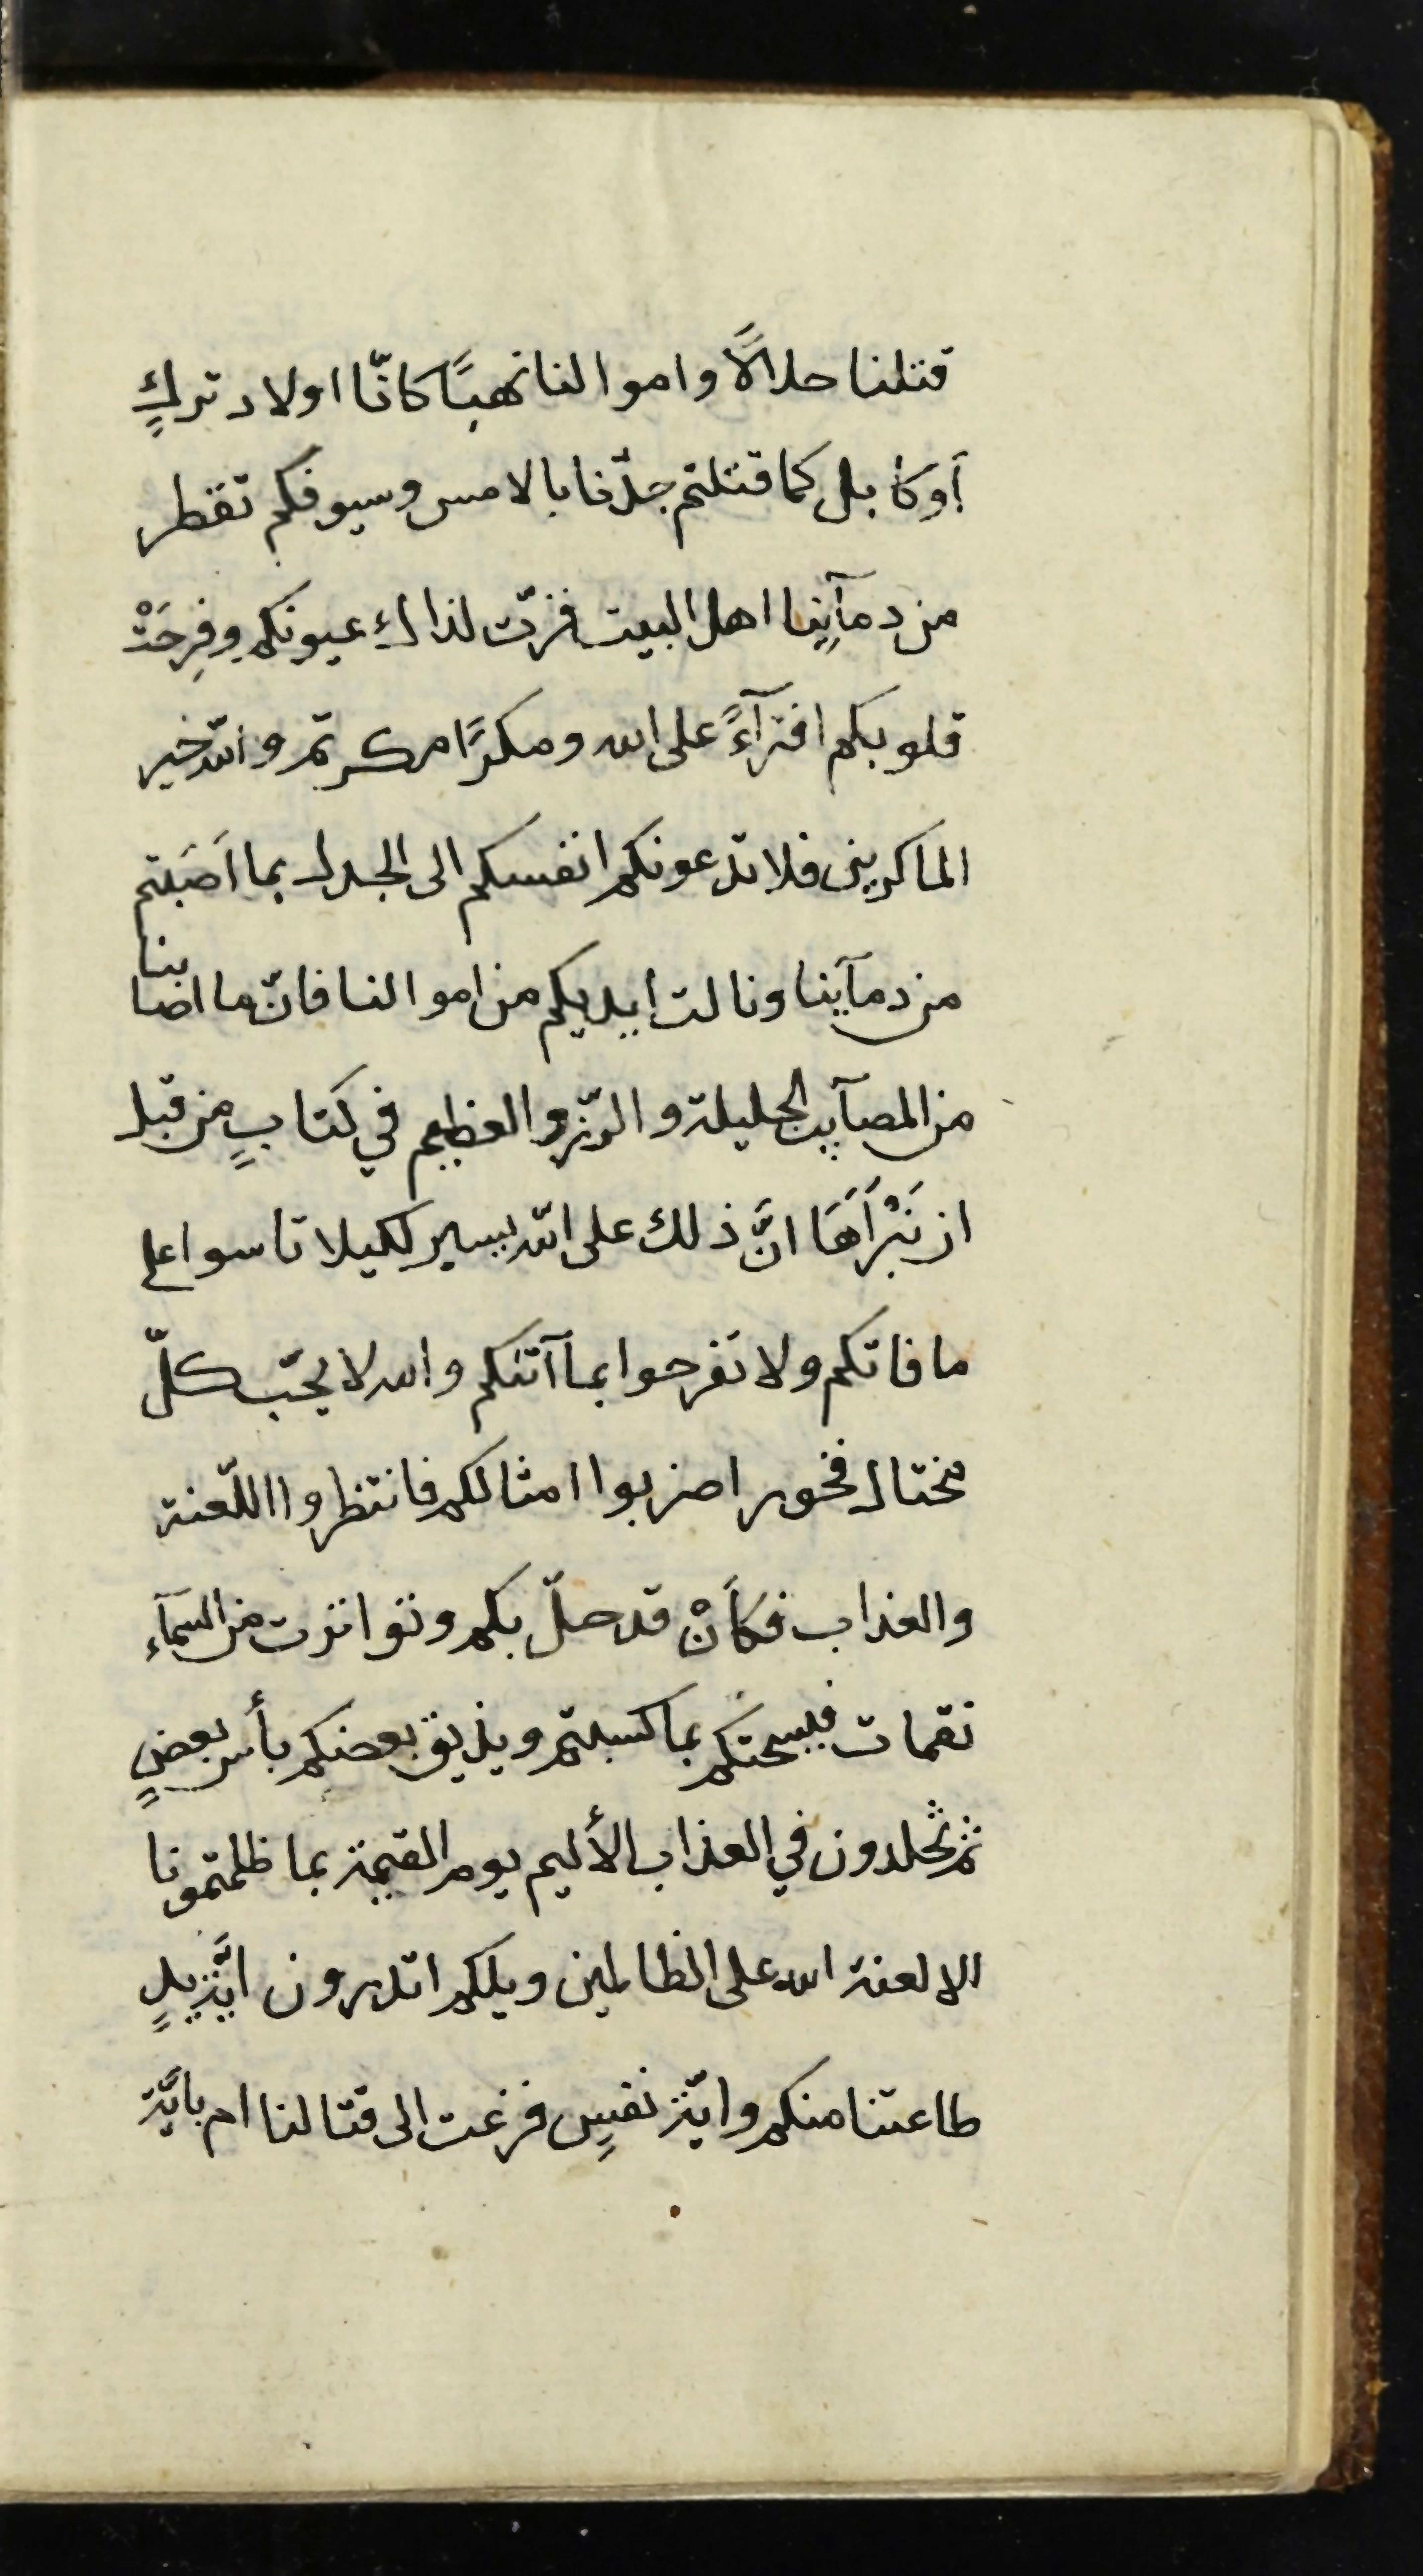 قتلنا حلالًا واموالنا نهبًا كانّا اولاد تركٍ
أوكابل كما قتلتم جدّنا بالامس وسيوفكم تقطر
من دمآئِنا اهل البيت فزّت لذالك عيونكم وفرِحَتْ
قلوبكم افترآءً على الله ومكرًا مكرتم والله خير
الماكرين فلا تدعونكم انفسكم الى الجدل بما اَصَبتم
من دمآئنا ونالت ايديكم من اموالنا فانّ ما اصابنا
من المصآئب الجليلة والرّزو العظيم في كتابٍ من قبل
ان نَبْرَأَهَا انَّ ذلك على الله يسير لكيلا تاسوا على
ما فاتكم ولا تفرحوا بما آتٰكم والله لا يحبّ كلّ
مختال فخور اضربوا امثالكم فانتظروا اللّعنة
والعذاب فكَأَنْ قد حلّ بكم وتواترت من السمآء
نقمات فيسحتكم بما كسبتم ويذيق بعضكم بأس بعضٍ
ثم تخلدون في العذاب الأليم يوم القيمة بما ظلمتمونا
الا لعنة الله على الظالمين ويلكم اتدرون ايّة يدٍ
طاعتنا منكم وايّة نفسٍ فزغت الى قتالنا ام بايّة